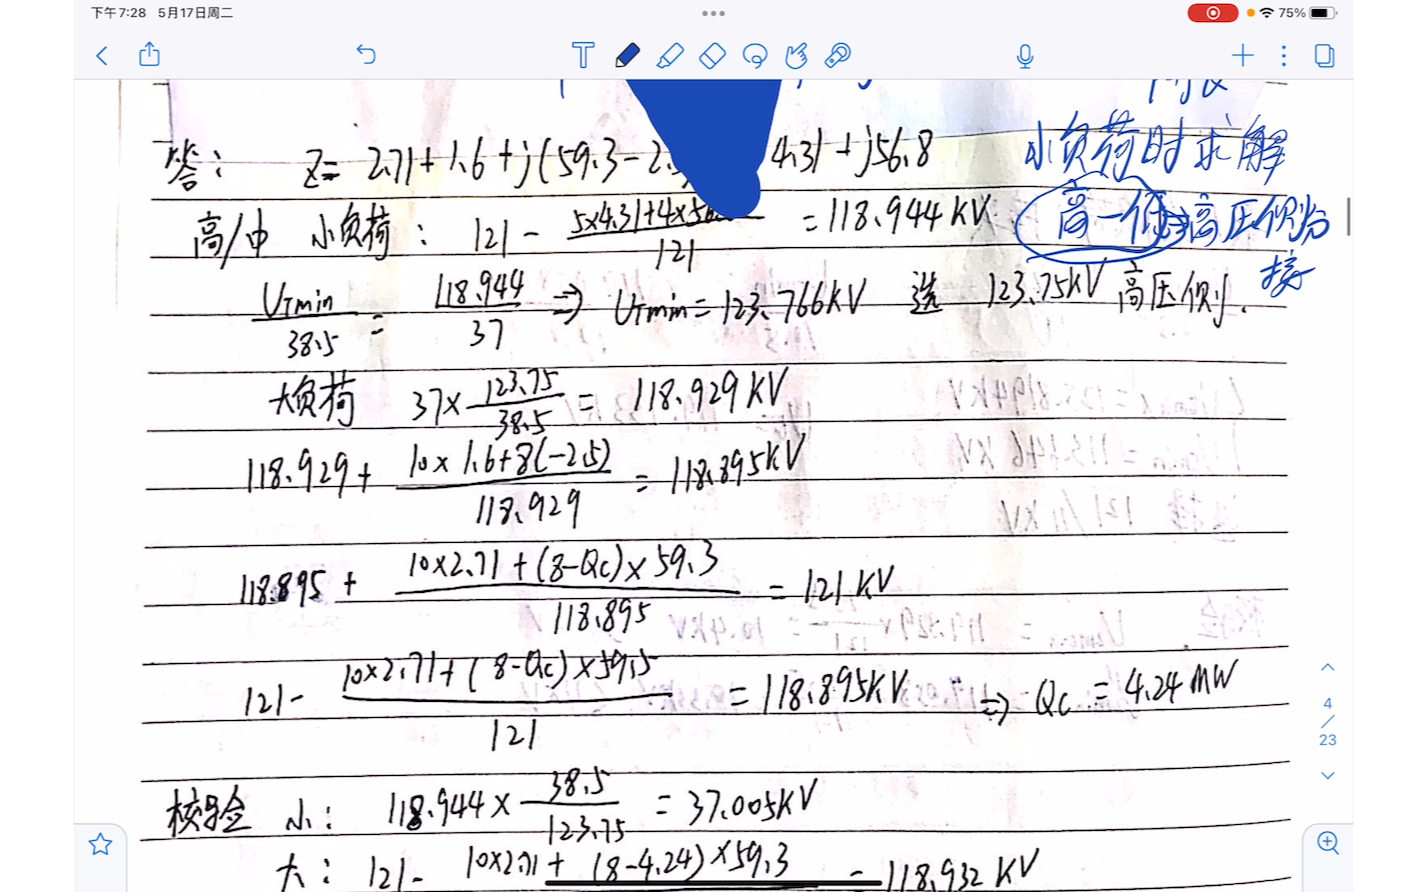 下午7:28 5月17日周二
75%
答: Z= 2.71+1.6+j(59.3-2. 4.31+j56.8
小负荷时求解
高/中 小负荷: 121- 5×4.31+4×56 / 121 =118.944KV
高-低⇒高压侧分接
UTmin/38.5 = 118.944/37 ⇒ UTmin=123.766KV 选 123.75KV 高压侧.
大负荷 37×123.75/38.5 = 118.929KV
118.929+ 10×1.6+8(-2.5) / 118.929 = 118.895KV
118.895+ 10×2.71+(8-Qc)×59.3 / 118.895 =121KV
121- 10×2.71+(8-Qc)×59.5 / 121 =118.895KV ⇒ Qc=4.24MW
4
/
23
校验 小: 118.944×38.5/123.75 =37.005KV
大: 121- 10×2.71+(8-4.24)×59.3 =118.932KV